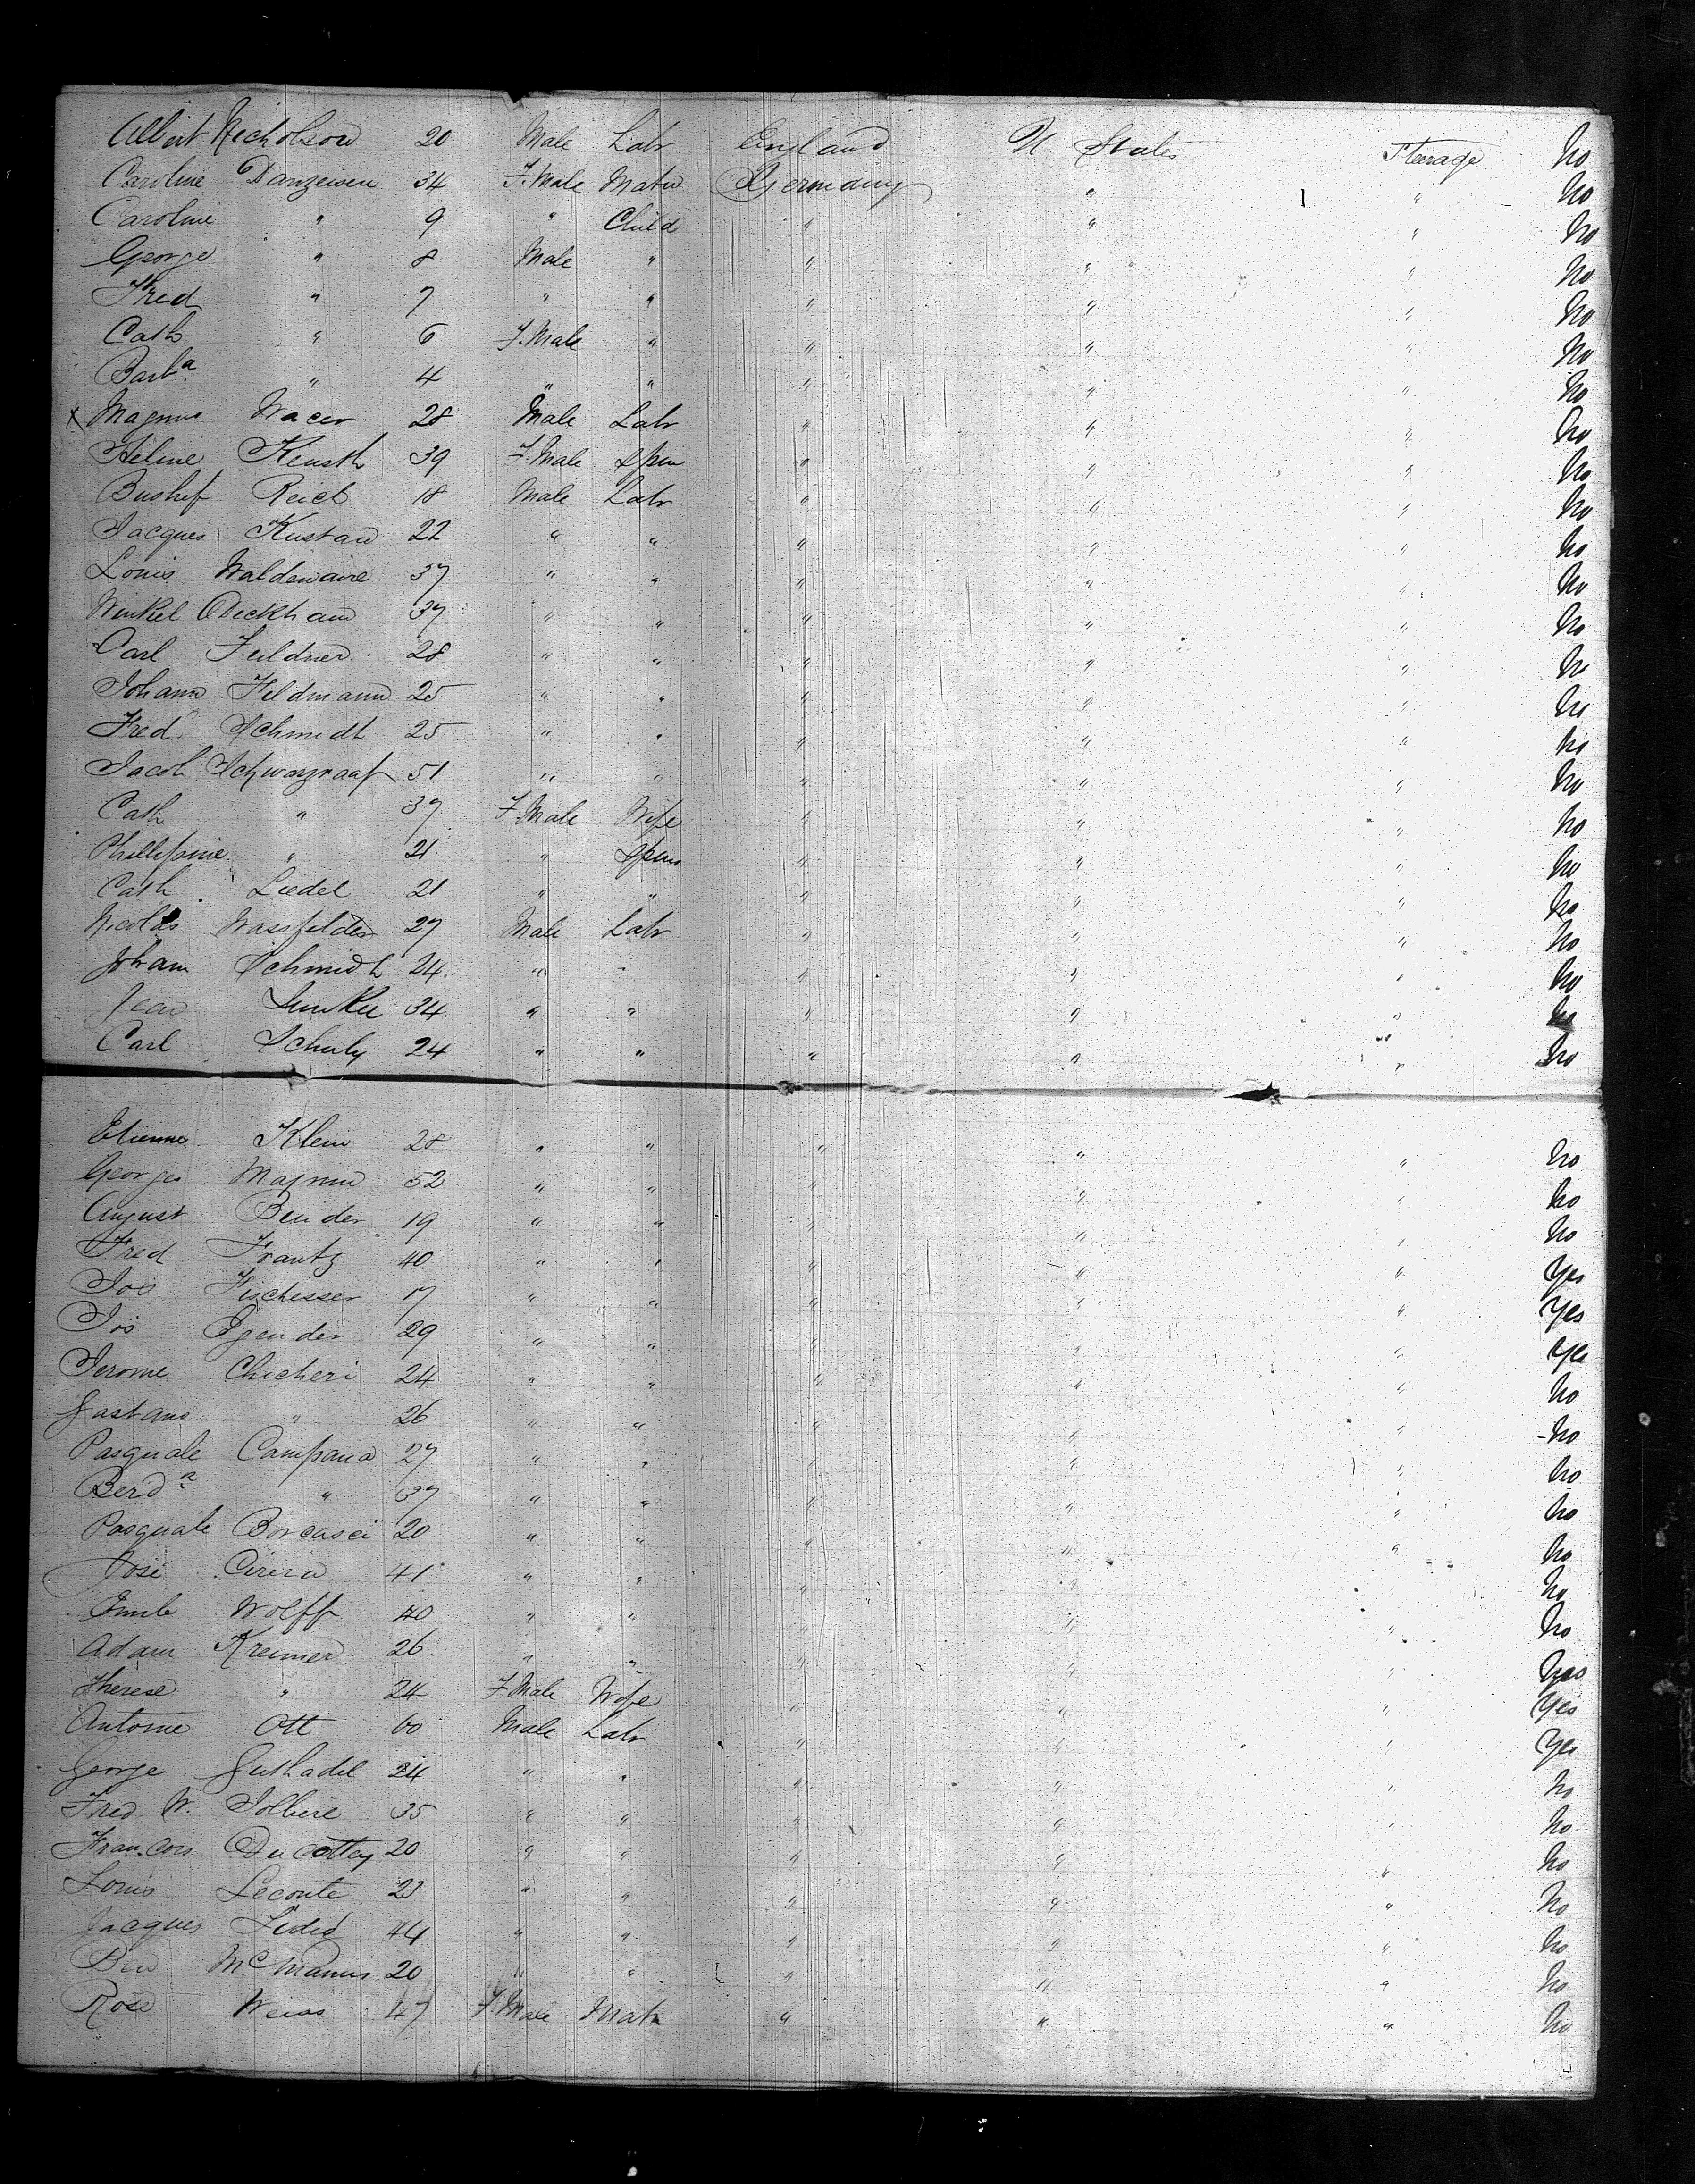 Albert Nicholson 20 Male Labr England U States Steerage No
Caroline Danzeisen 34 F.Male Matn Germany " " No
Caroline " 9 " Child " " " No
George " 8 Male " " " " No
Fred " 7 " " " " " No
Cath " 6 F.Male " " " " No
Barba " 4 " " " " " No
x Magnus Wacer 28 Male Labr " " " No
Heline 39 F.Male Spin " " " No
Reich 18 Male Labr " " " No
Jacques Kustaw 22 " " " " " No
Louis Waldewaire 37 " " " " " No
Winkel Deckham 37 " " " " " No
Carl Feldner 28 " " " " " No
Johann Feldmann 25 " " " " " No
Fred Schmidt 25 " " " " " No
Jacob Schwarzraaf 51 " " " " " No
Cath " 37 F.Male Wife " " " No
Phillipine " 21 " Spin " " " No
Cath Liedel 21 " " " " " No
Nicolas Wassfelder 27 Male Labr " " " No
Joham Schmidt 24 " " " " " No
Jean 34 " " " " No
Carl Schulz 24 " " " " " No
Etienne Klein 28 " " " " " No
Georges Magnin 52 " " " " " No
August Bender 19 " " " " " No
Fred Frantz 40 " " " " " Yes
Jos Fischesser 17 " " " " " Yes
Jos Egender 29 " " " " " Yes
Jerome Chicheri 24 " " " " " No
Gastano " 26 " " " " " No
Pasquale Campana 27 " " " " " No
Berdn " 37 " " " " " No
Pasquale Borcasci 20 " " " " " No
José Cirera 41 " " " " " No
Emile Wolff 40 " " " " " No
Adam Kremer 26 " " " " " Yes
Therese " 24 F.Male Wife " " " Yes
Antoine Ott 60 Male Labr " " " Yes
George Guthadel 24 " " " " " No
Fred W. Jolliere 35 " " " " " No
Francois Ducottey 20 " " " " " No
Louis Leconte 23 " " " " " No
Jacques 44 " " " " " No
Ben McManus 20 " " " " " No
Rose Weiss 47 F.Male Matn " " " No